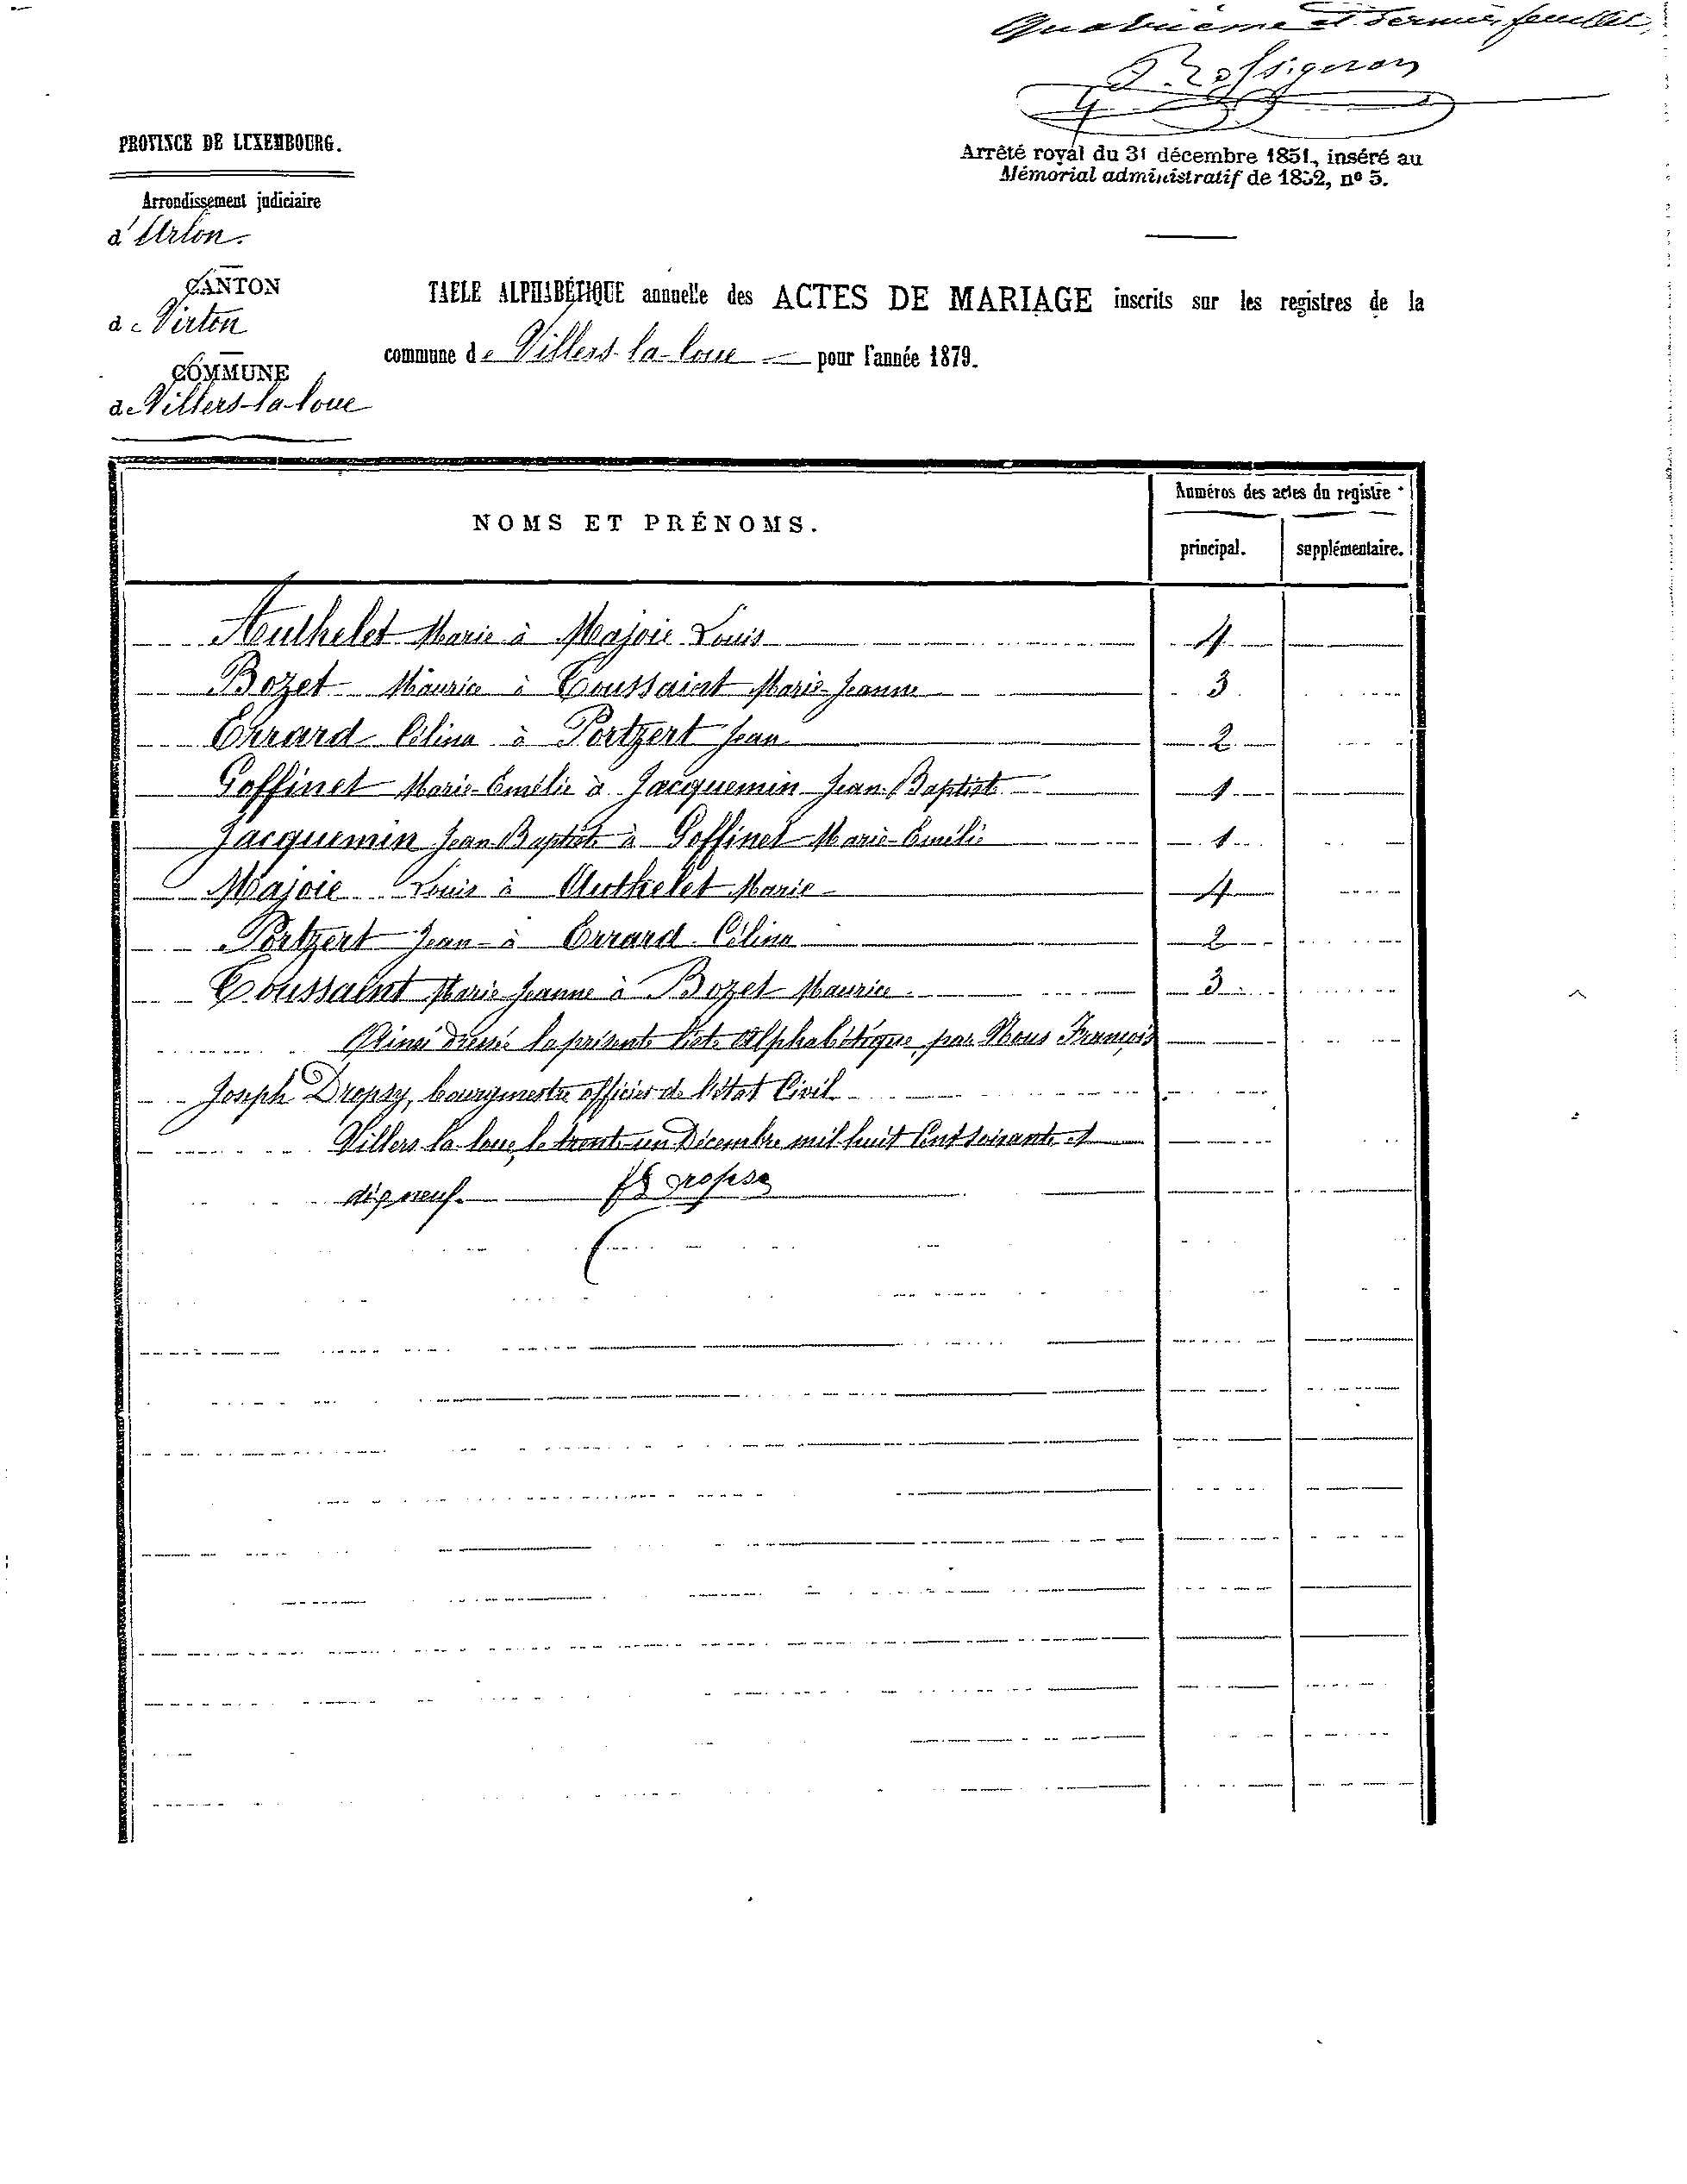 Quatrième et dernier feuillet,
Rossignon
PROVINCE DE LUXEMBOURG.
Arrêté royal du 31 décembre 1851, inséré au
Mémorial administratif de 1852, nº 5.
Arrondissement judiciaire
d'Arlon.
CANTON
de Virton
COMMUNE
de Villers-la-loue
TABLE ALPHABÉTIQUE annuelle des ACTES DE MARIAGE inscrits sur les registres de la
commune de Villers-la-loue pour l'année 1879.
NOMS ET PRÉNOMS.
Numéros des actes du registre
principal. supplémentaire.
Authelet Marie à Majoie Louis 4
Bozet Maurice à Toussaint Marie-Jeanne 3
Errard Célina à Portzert Jean 2
Goffinet Marie-Emélie à Jacquemin Jean-Baptiste 1
Jacquemin Jean-Baptiste à Goffinet Marie-Emélie 1
Majoie Louis à Authelet Marie 4
Portzert Jean à Errard Célina 2
Toussaint Marie Jeanne à Bozet Maurice 3
Ainsi dressé la présente liste Alphabétique, par Nous François
Joseph Dropsy, bourgmestre officier de l'état Civil
Villers-la-loue, le trente-un Décembre mil huit Cent soixante et
dix neuf. Dropsy